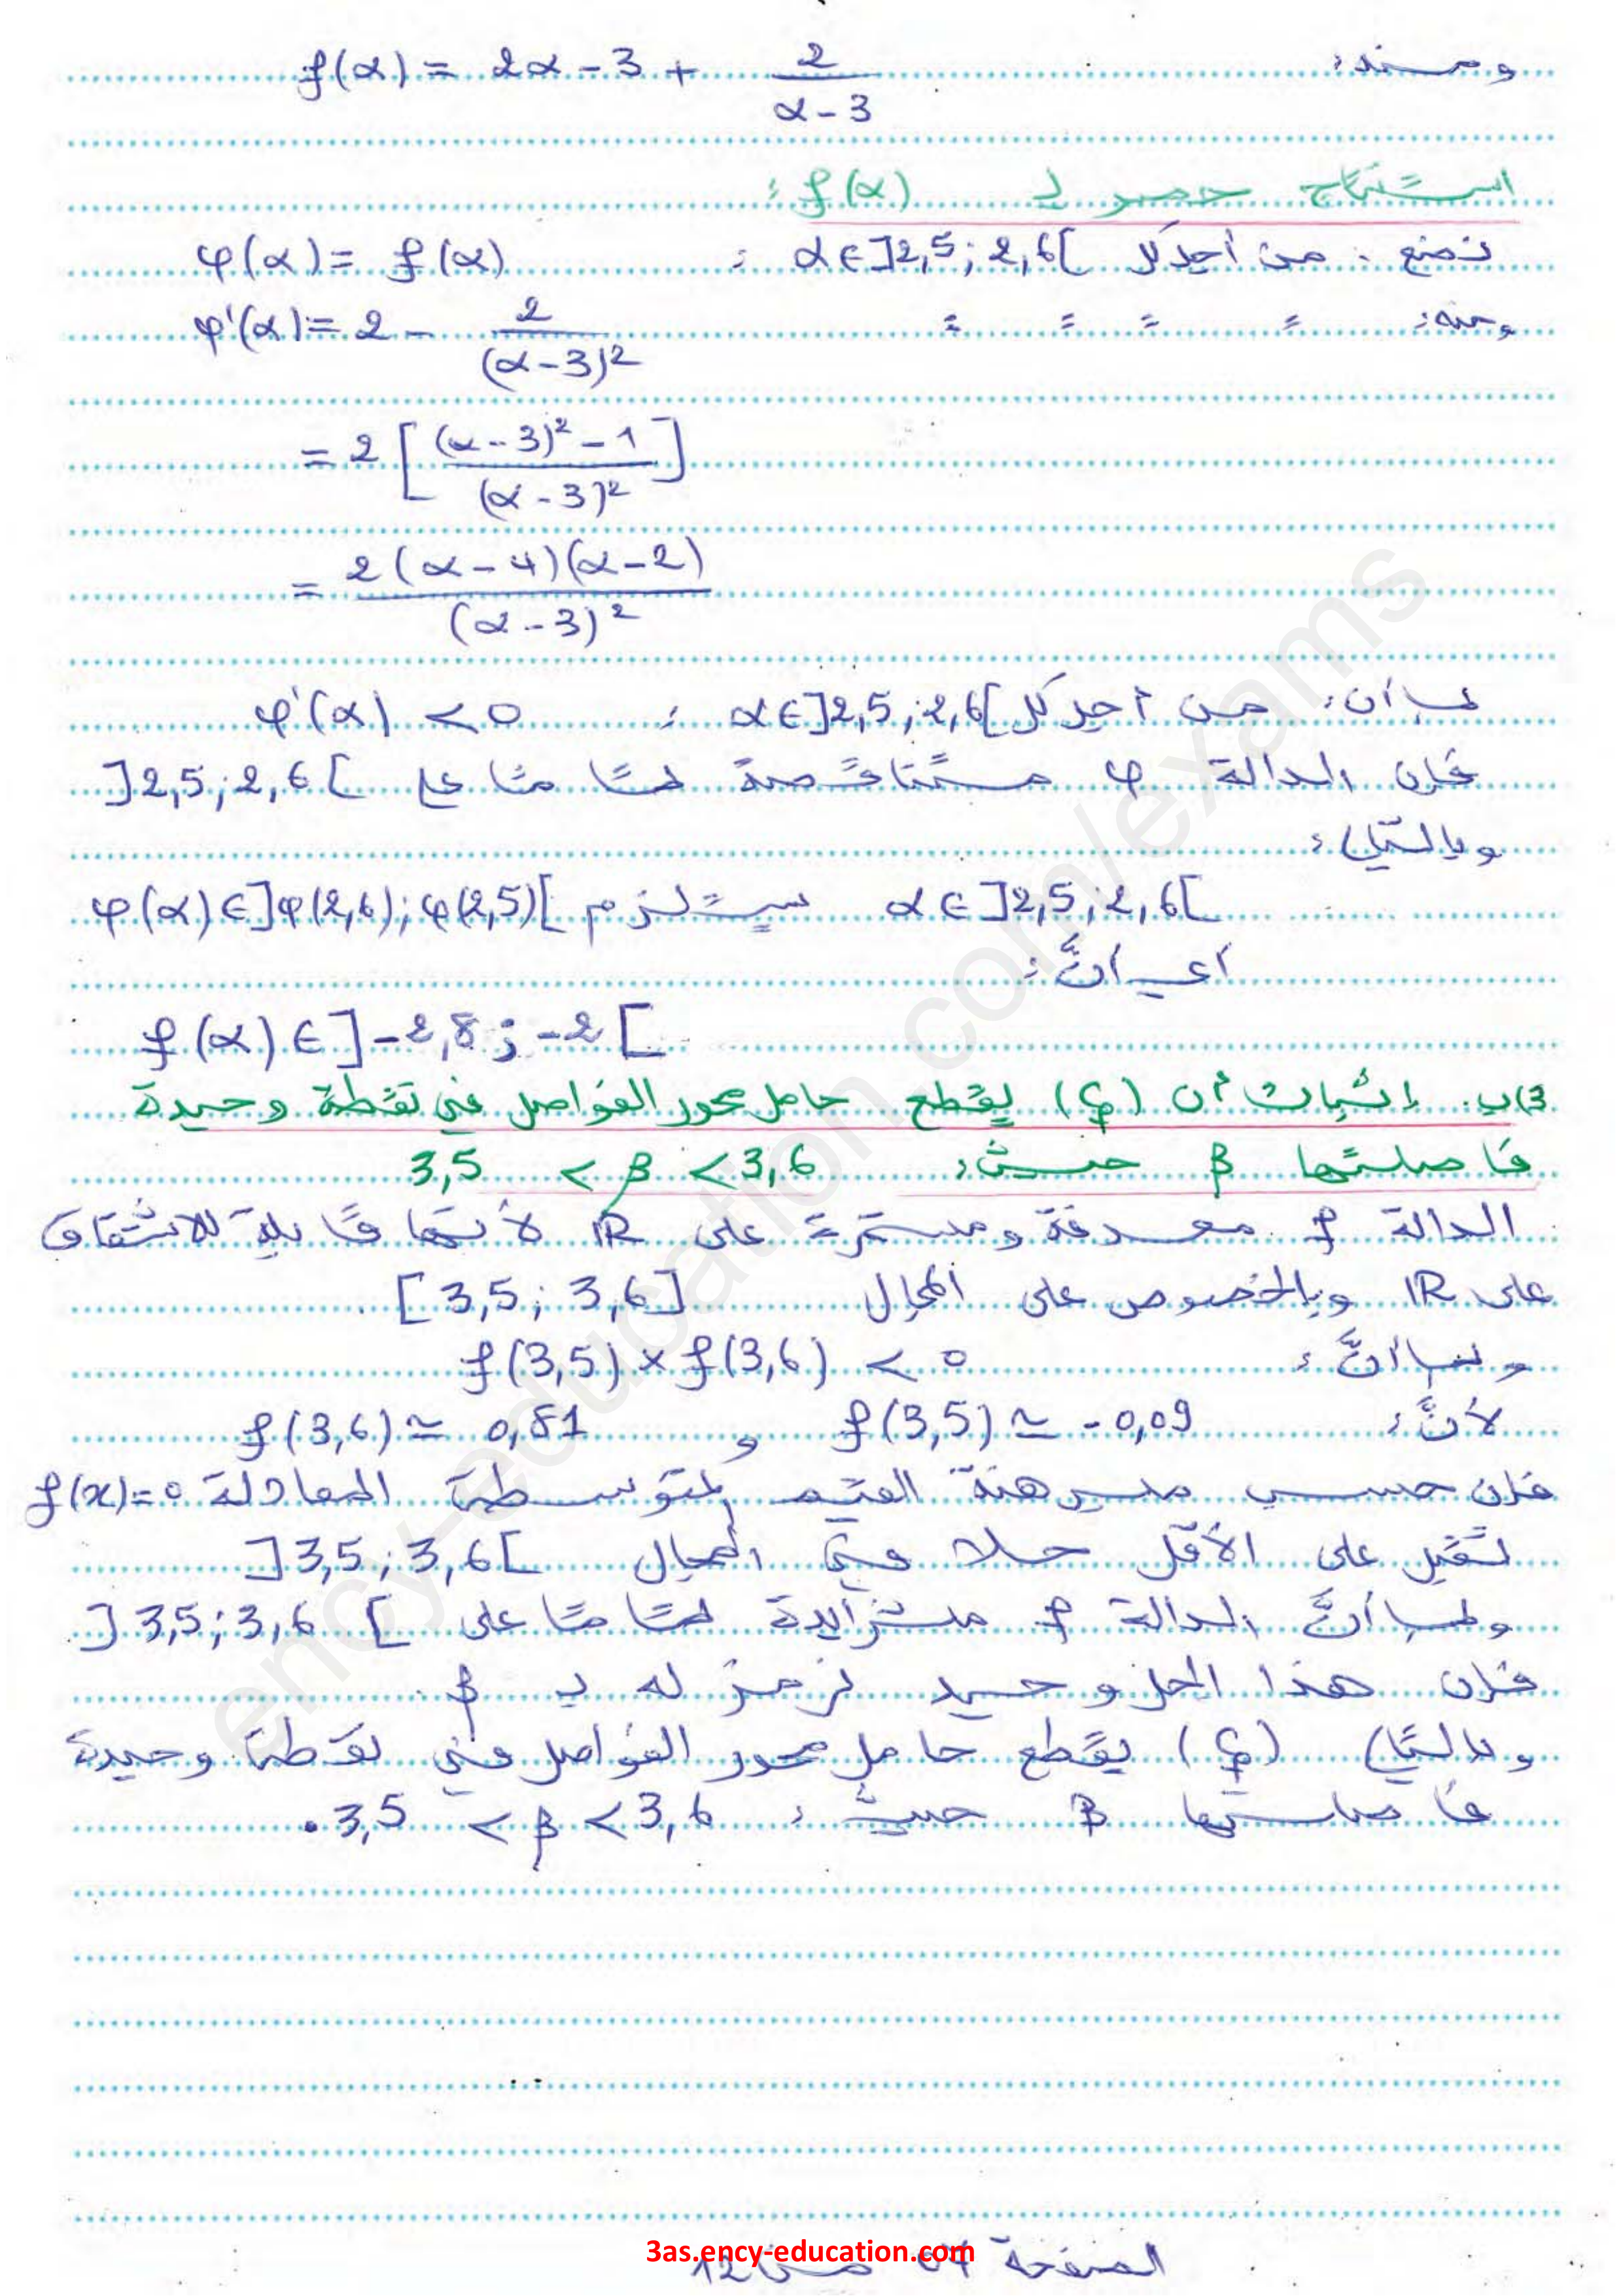 ومنه: f(α) = 2α - 3 + 2/(α - 3)
استنتاج حصر لـ f(α):
نضع: من أجل كل α ∈ ]2,5 ; 2,6[ : φ(α) = f(α)
ومنه: = = = = φ'(α) = 2 - 2/(α - 3)²
= 2 [ ((α - 3)² - 1)/(α - 3)² ]
= 2(α - 4)(α - 2)/(α - 3)²
بما أن: من أجل كل α ∈ ]2,5 ; 2,6[ : φ'(α) < 0
فإن الدالة φ متناقصة تماما على ]2,5 ; 2,6[
وبالتالي:
α ∈ ]2,5 ; 2,6[ يستلزم φ(α) ∈ ]φ(2,6) ; φ(2,5)[
أي أنَّ:
f(α) ∈ ]-2,8 ; -2[
3) ب. إثبات أن (Cf) يقطع حامل محور الفواصل في نقطة وحيدة
فاصلتها β حيث: 3,5 < β < 3,6
الدالة f معرفة ومستمرة على IR لأنها قابلة للاشتقاق
على IR وبالخصوص على المجال [3,5 ; 3,6].
وبما أنَّ: f(3,5) × f(3,6) < 0
لأنَّ: f(3,5) ≃ -0,09 و f(3,6) ≃ 0,81
فإن حسب مبرهنة القيم المتوسطة المعادلة f(x)=0
تقبل على الأقل حلا في المجال ]3,5 ; 3,6[
وبما أنَّ الدالة f متزايدة تماما على ]3,5 ; 3,6[
فإن هذا الحل وحيد نرمز له بـ β.
وبالتالي (Cf) يقطع حامل محور الفواصل في نقطة وحيدة
فاصلتها β حيث: 3,5 < β < 3,6.
الصفحة 07 من 12
3as.ency-education.com
ency-education.com/exams